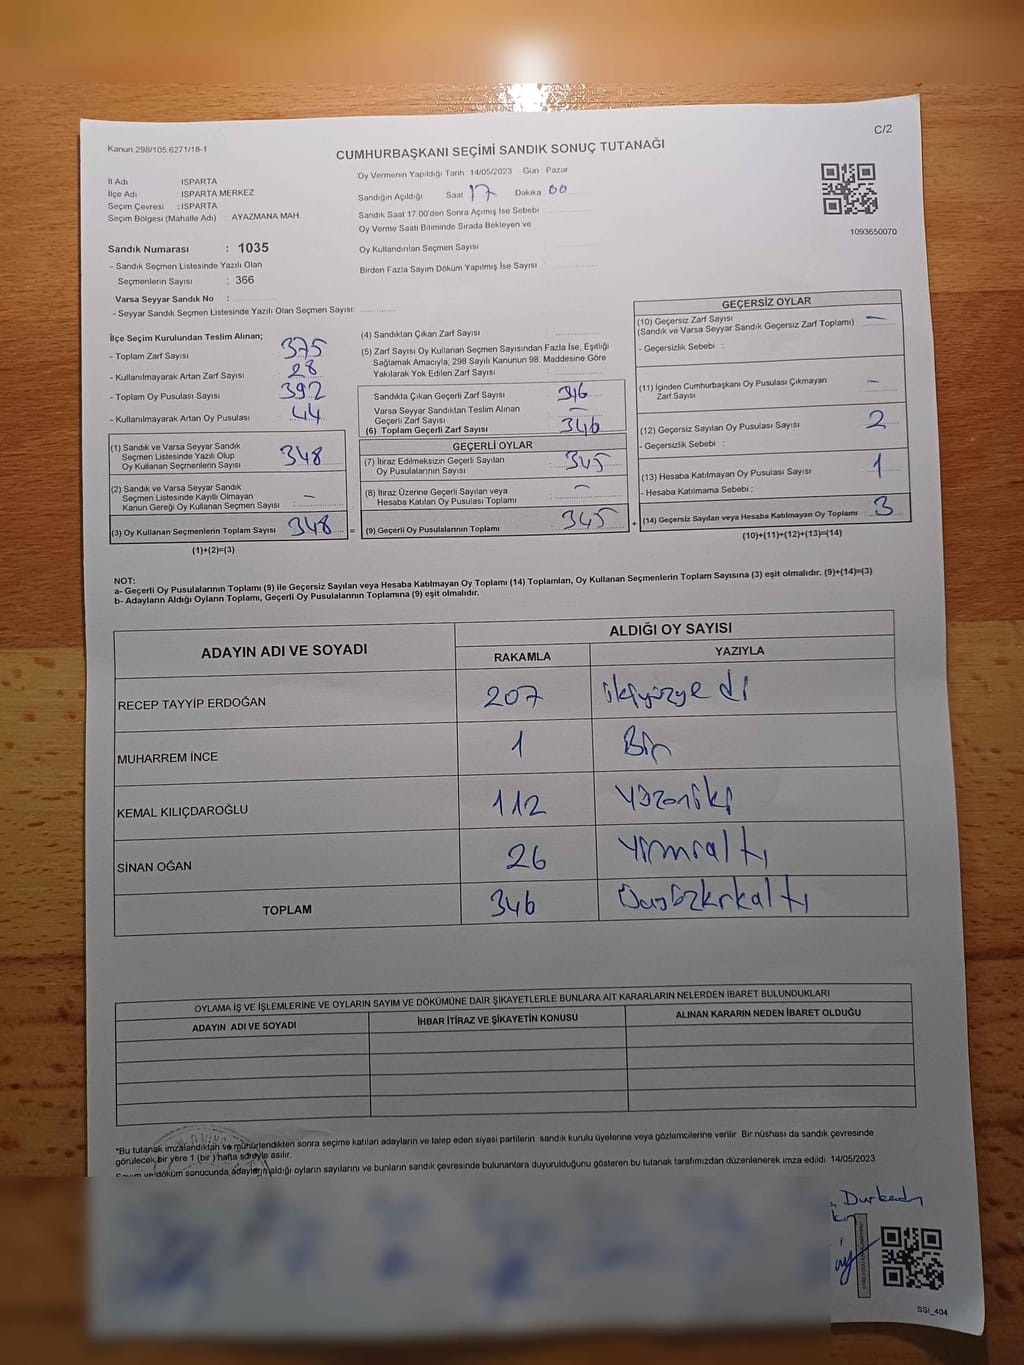 Kanun 298/105 6271/18-1
C/2
CUMHURBAŞKANI SEÇİMİ SANDIK SONUÇ TUTANAĞI
İl Adı : ISPARTA
İlçe Adı : ISPARTA MERKEZ
Seçim Çevresi : ISPARTA
Seçim Bölgesi (Mahalle Adı) AYAZMANA MAH.
Sandık Numarası : 1035
- Sandık Seçmen Listesinde Yazılı Olan
Seçmenlerin Sayısı : 366
Varsa Seyyar Sandık No :
- Seyyar Sandık Seçmen Listesinde Yazılı Olan Seçmen Sayısı:
Oy Vermenin Yapıldığı Tarih 14/05/2023 Gün Pazar
Sandığın Açıldığı Saat 17 Dakika 00
Sandık Saat 17.00'den Sonra Açımış İse Sebebi
Oy Verme Saati Bitiminde Sırada Bekleyen ve
Oy Kullandırılan Seçmen Sayısı
Birden Fazla Sayım Döküm Yapılmış İse Sayısı
1093650070
İlçe Seçim Kurulundan Teslim Alınan;
- Toplam Zarf Sayısı 375
- Kullanılmayarak Artan Zarf Sayısı 28
- Toplam Oy Pusulası Sayısı 392
- Kullanılmayarak Artan Oy Pusulası 44
(1) Sandık ve Varsa Seyyar Sandık
Seçmen Listesinde Yazılı Olup
Oy Kullanan Seçmenlerin Sayısı 348
(2) Sandık ve Varsa Seyyar Sandık
Seçmen Listesinde Kayıtlı Olmayan
Kanun Gereği Oy Kullanan Seçmen Sayısı : –
(3) Oy Kullanan Seçmenlerin Toplam Sayısı 348 =
(1)+(2)=(3)
(4) Sandıktan Çıkan Zarf Sayısı :
(5) Zarf Sayısı Oy Kullanan Seçmen Sayısından Fazla İse, Eşitliği
Sağlamak Amacıyla, 298 Sayılı Kanunun 98. Maddesine Göre
Yakılarak Yok Edilen Zarf Sayısı :
Sandıkta Çıkan Geçerli Zarf Sayısı : 346
Varsa Seyyar Sandıktan Teslim Alınan
Geçerli Zarf Sayısı : –
(6) Toplam Geçerli Zarf Sayısı : 346
GEÇERLİ OYLAR
(7) İtiraz Edilmeksizin Geçerli Sayılan
Oy Pusulalarının Sayısı : 345
(8) İtiraz Üzerine Geçerli Sayılan veya
Hesaba Katılan Oy Pusulası Toplamı : –
(9) Geçerli Oy Pusulalarının Toplamı : 345 +
GEÇERSİZ OYLAR
(10) Geçersiz Zarf Sayısı : –
(Sandık ve Varsa Seyyar Sandık Geçersiz Zarf Toplamı)
- Geçersizlik Sebebi :
(11) İçinden Cumhurbaşkanı Oy Pusulası Çıkmayan
Zarf Sayısı : –
(12) Geçersiz Sayılan Oy Pusulası Sayısı : 2
- Geçersizlik Sebebi :
(13) Hesaba Katılmayan Oy Pusulası Sayısı : 1
- Hesaba Katılmama Sebebi :
(14) Geçersiz Sayılan veya Hesaba Katılmayan Oy Toplamı 3
(10)+(11)+(12)+(13)=(14)
NOT:
a- Geçerli Oy Pusulalarının Toplamı (9) ile Geçersiz Sayılan veya Hesaba Katılmayan Oy Toplamı (14) Toplamları, Oy Kullanan Seçmenlerin Toplam Sayısına (3) eşit olmalıdır. (9)+(14)=(3)
b- Adayların Aldığı Oyların Toplamı, Geçerli Oy Pusulalarının Toplamına (9) eşit olmalıdır.
ADAYIN ADI VE SOYADI
ALDIĞI OY SAYISI
RAKAMLA YAZIYLA
RECEP TAYYİP ERDOĞAN 207 ikiyüzyedi
MUHARREM İNCE 1 Bir
KEMAL KILIÇDAROĞLU 112 Yüzoniki
SİNAN OĞAN 26 Yirmialtı
TOPLAM 346 Üçyüzkırkaltı
OYLAMA İŞ VE İŞLEMLERİNE VE OYLARIN SAYIM VE DÖKÜMÜNE DAİR ŞİKAYETLERLE BUNLARA AİT KARARLARIN NELERDEN İBARET BULUNDUKLARI
ADAYIN ADI VE SOYADI İHBAR İTİRAZ VE ŞİKAYETİN KONUSU ALINAN KARARIN NEDEN İBARET OLDUĞU
*Bu tutanak imzalandıktan ve mühürlendikten sonra seçime katılan adayların ve talep eden siyasi partilerin sandık kurulu üyelerine veya gözlemcilerine verilir. Bir nüshası da sandık çevresinde
görülecek bir yere 1 (bir) hafta süreyle asılır.
Sayım ve döküm sonucunda adayların aldığı oyların sayılarını ve bunların sandık çevresinde bulunanlara duyurulduğunu gösteren bu tutanak tarafımızdan düzenlenerek imza edildi. 14/05/2023
SSI_404